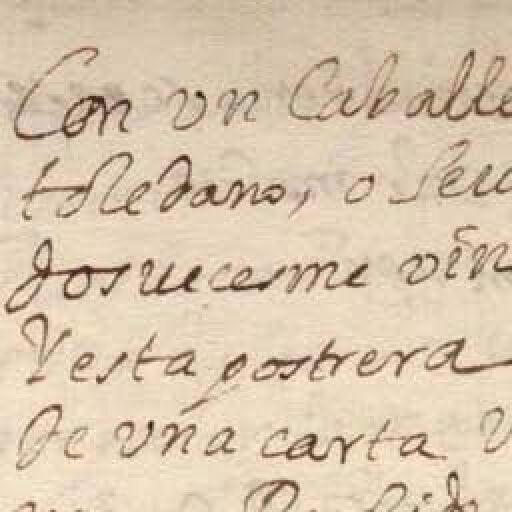 Con vn Caballe
toledano, o Seu
dos uecesme vin
Y esta postrera
de vna carta V